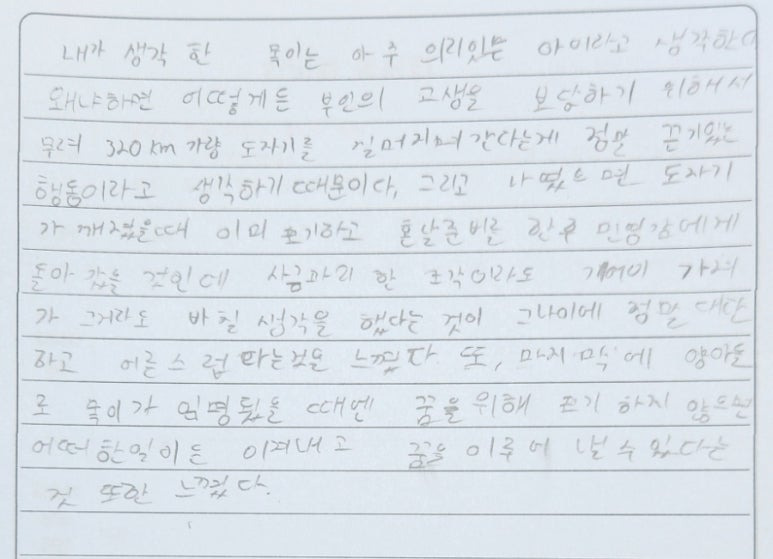 내가 생각 한 목이는 아주 의리있는 아이라고 생각한다
왜냐하면 어떻게든 부인의 고생을 보답하기 위해서
무려 320km 가량 도자기를 짊어지며 간다는게 정말 끈기있는
행동이라고 생각하기 때문이다, 그리고 나였으면 도자기
가 깨졌을때 이미 포기하고 혼날준비를 한후 민영감에게
돌아 갔을 것인데 사금파리 한 조각이라도 기어이 가려
가 그거라도 바칠 생각을 했다는 것이 그나이에 정말 대단
하고 어른스럽다는것을 느꼈다 또, 마지막에 양아들
로 목이가 임명됬을 때엔 꿈을 위해 포기 하지 않으면
어떠한일이든 이겨내고 꿈을 이루어 낼 수 있다는
것 또한 느꼈다.